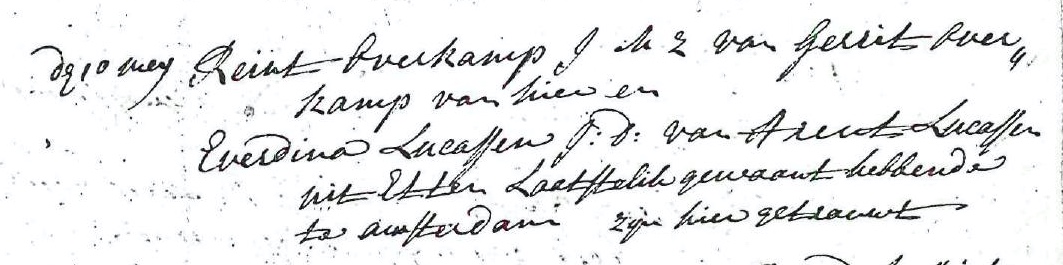 dg 10 mey Reint Overkamp J M Z van Gerrit Over„
kamp van hier en
Everdina Lucassen J: D: van Arent Lucassen
uit Etten Laatstelik gewoont hebbende
te amsterdam zijn hier getrouwt